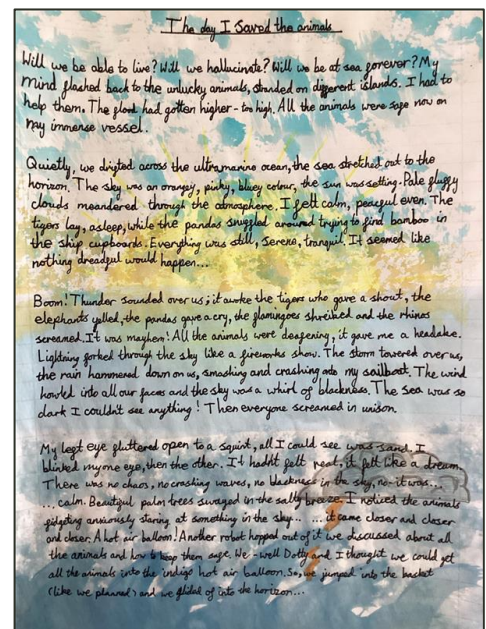 The day I Saved the animals
Will we be able to live? Will we hallucinate? Will we be at sea forever? My
mind flashed back to the unlucky animals, stranded on different islands. I had to
help them. The flood had gotten higher - too high. All the animals were safe now on
my immense vessel.
Quietly, we drifted across the ultramarine ocean, the sea stretched out to the
horizon. The sky was an orangy, pinky, bluey colour, the sun was setting. Pale fluffy
clouds meandered through the atmosphere. I felt calm, peaceful even. The
tigers lay, asleep, while the pandas snuggled around trying to find bamboo in
the ship cupboards. Everything was still, serene, tranquil. It seemed like
nothing dreadful would happen...
Boom! Thunder sounded over us; it awoke the tigers who gave a shout, the
elephants yelled, the pandas gave a cry, the flamingoes shreiked and the rhinos
screamed. It was mayhem! All the animals were deafening, it gave me a headake.
Lightning forked through the sky like a fireworks show. The storm towered over us,
the rain hammered down on us, smashing and crashing onto my sailboat. The wind
howled into all our faces and the sky was a whirl of blackness. The sea was so
dark I couldn't see anything! Then everyone screamed in unison.
My left eye fluttered open to a squint, all I could see was sand. I
blinked my one eye, then the other. It hadn't felt real, it felt like a dream.
There was no chaos, no crashing waves, no blackness in the sky, no - it was...
...calm. Beautiful palm trees swayed in the salty breeze. I noticed the animals
fidgeting anxiously staring at something in the sky... ...it came closer and closer
and closer. A hot air balloon! Another robot hopped out of it we discussed about all
the animals and how to keep them safe. We - well Dotty and I thought we could get
all the animals into the indigo hot air balloon. So, we jumped into the basket
(like we planned) and we glided of into the horizon...